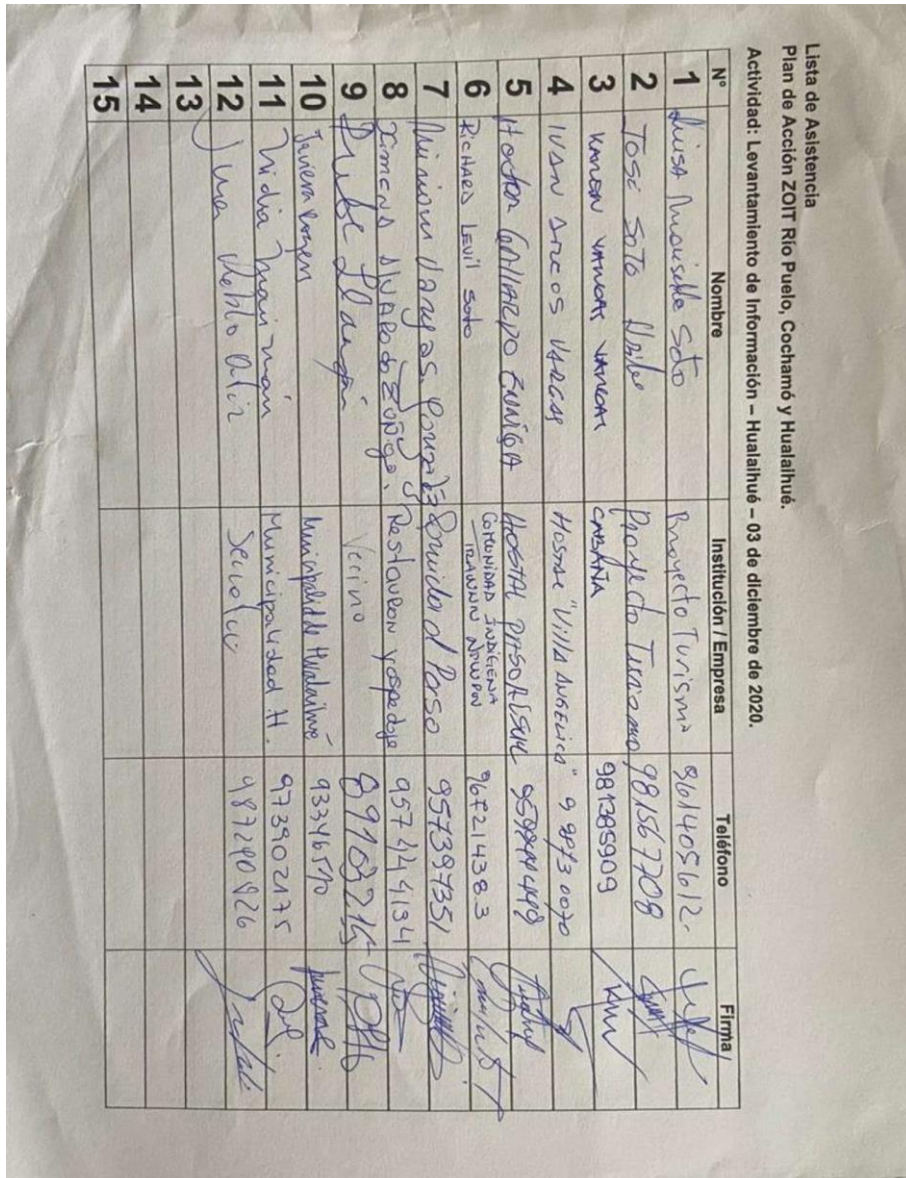 Lista de Asistencia
Plan de Acción ZOIT Río Puelo, Cochamó y Hualaihué.
Actividad: Levantamiento de Información – Hualaihué – 03 de diciembre de 2020.
N° Nombre Institución / Empresa Teléfono Firma
1 Luisa Mansilla Soto Proyecto Turismo 961405612-
2 Jose Soto Uribe Proyecto Turismo 981567708
3 Karen Vargas Vargas CABAÑA 981385909
4 IVAN Arcos VARGAS HOSTAL "Villa ANGELICA" 9 8973 0070
5 Hector GALLARDO ZUNIGA HOSTAL 959444498
6 RICHARD LEVIL Soto COMUNIDAD INDIGENA 967214383
7 Vargas 957397351
8 XIMENA ALVARADO ZUÑIGA. Restauron y ospedaje 957444134
9 Vecino
10 Javiera Municipalidad de Hualaihué
11 Nidia Municipalidad H. 973902175
12 987290826
13
14
15